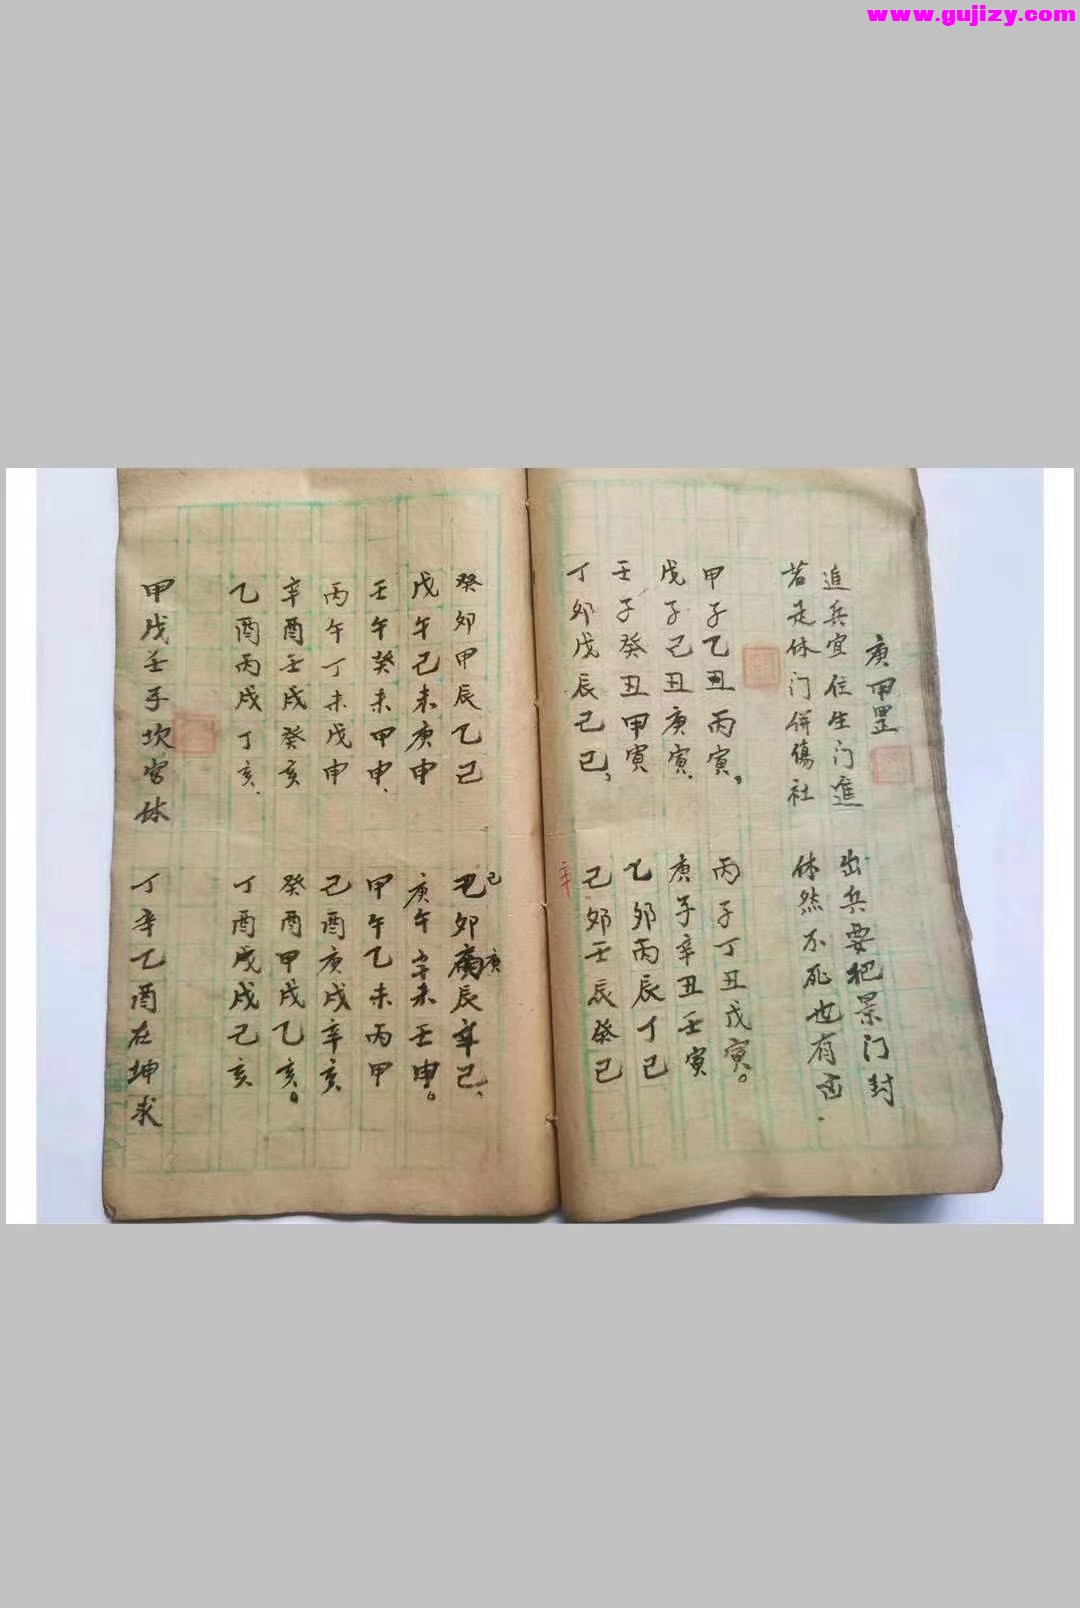 www.gujizy.com
庚甲罡
追兵宜往生门進 出兵要把景门封
若走休门併傷社 休然不死也有凶
甲子乙丑丙寅。 丙子丁丑戊寅。
戊子己丑庚寅 庚子辛丑壬寅
壬子癸丑甲寅 乙卯丙辰丁已
丁卯戊辰己已、 己卯壬辰癸已
辛
癸卯甲辰乙已 卯辰辛已、
己
庚
戊午己未庚申 庚午辛未壬申。
壬午癸未甲申、 甲午乙未丙甲
丙午丁未戊申 己酉庚戌辛亥
辛酉壬戌癸亥 癸酉甲戌乙亥。
乙酉丙戌丁亥、 丁酉戊戌己亥
甲戊壬子坎宫休 丁辛乙酉在坤求